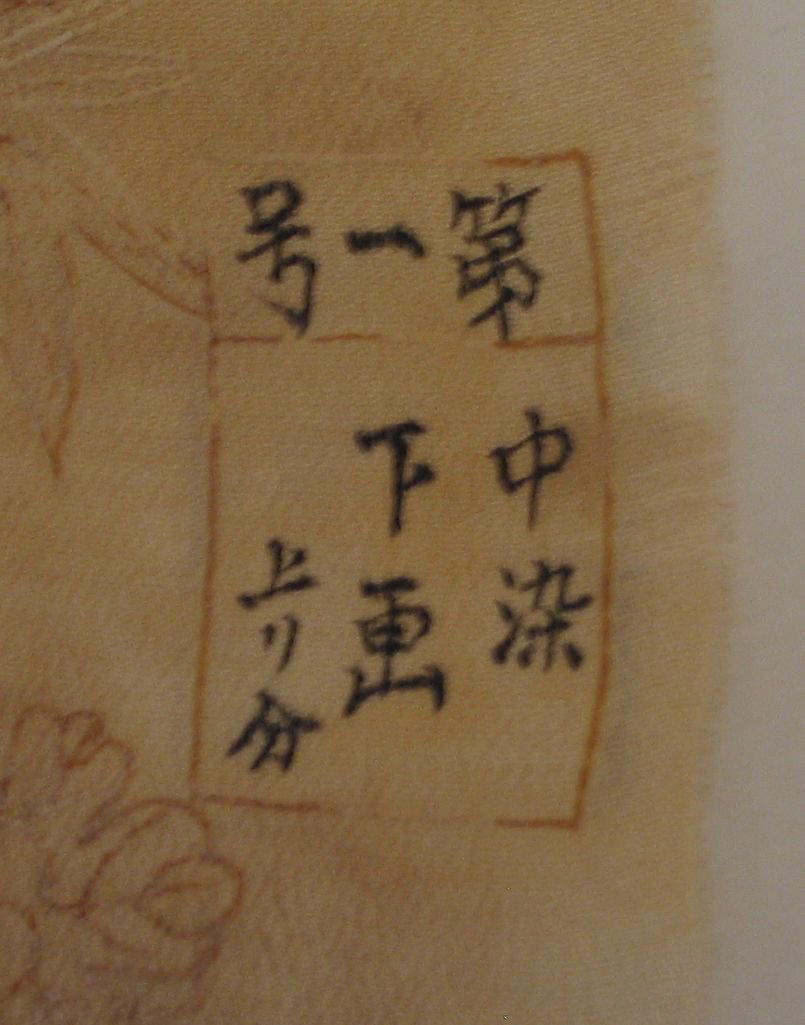 第一号
中染
下画
上リ分